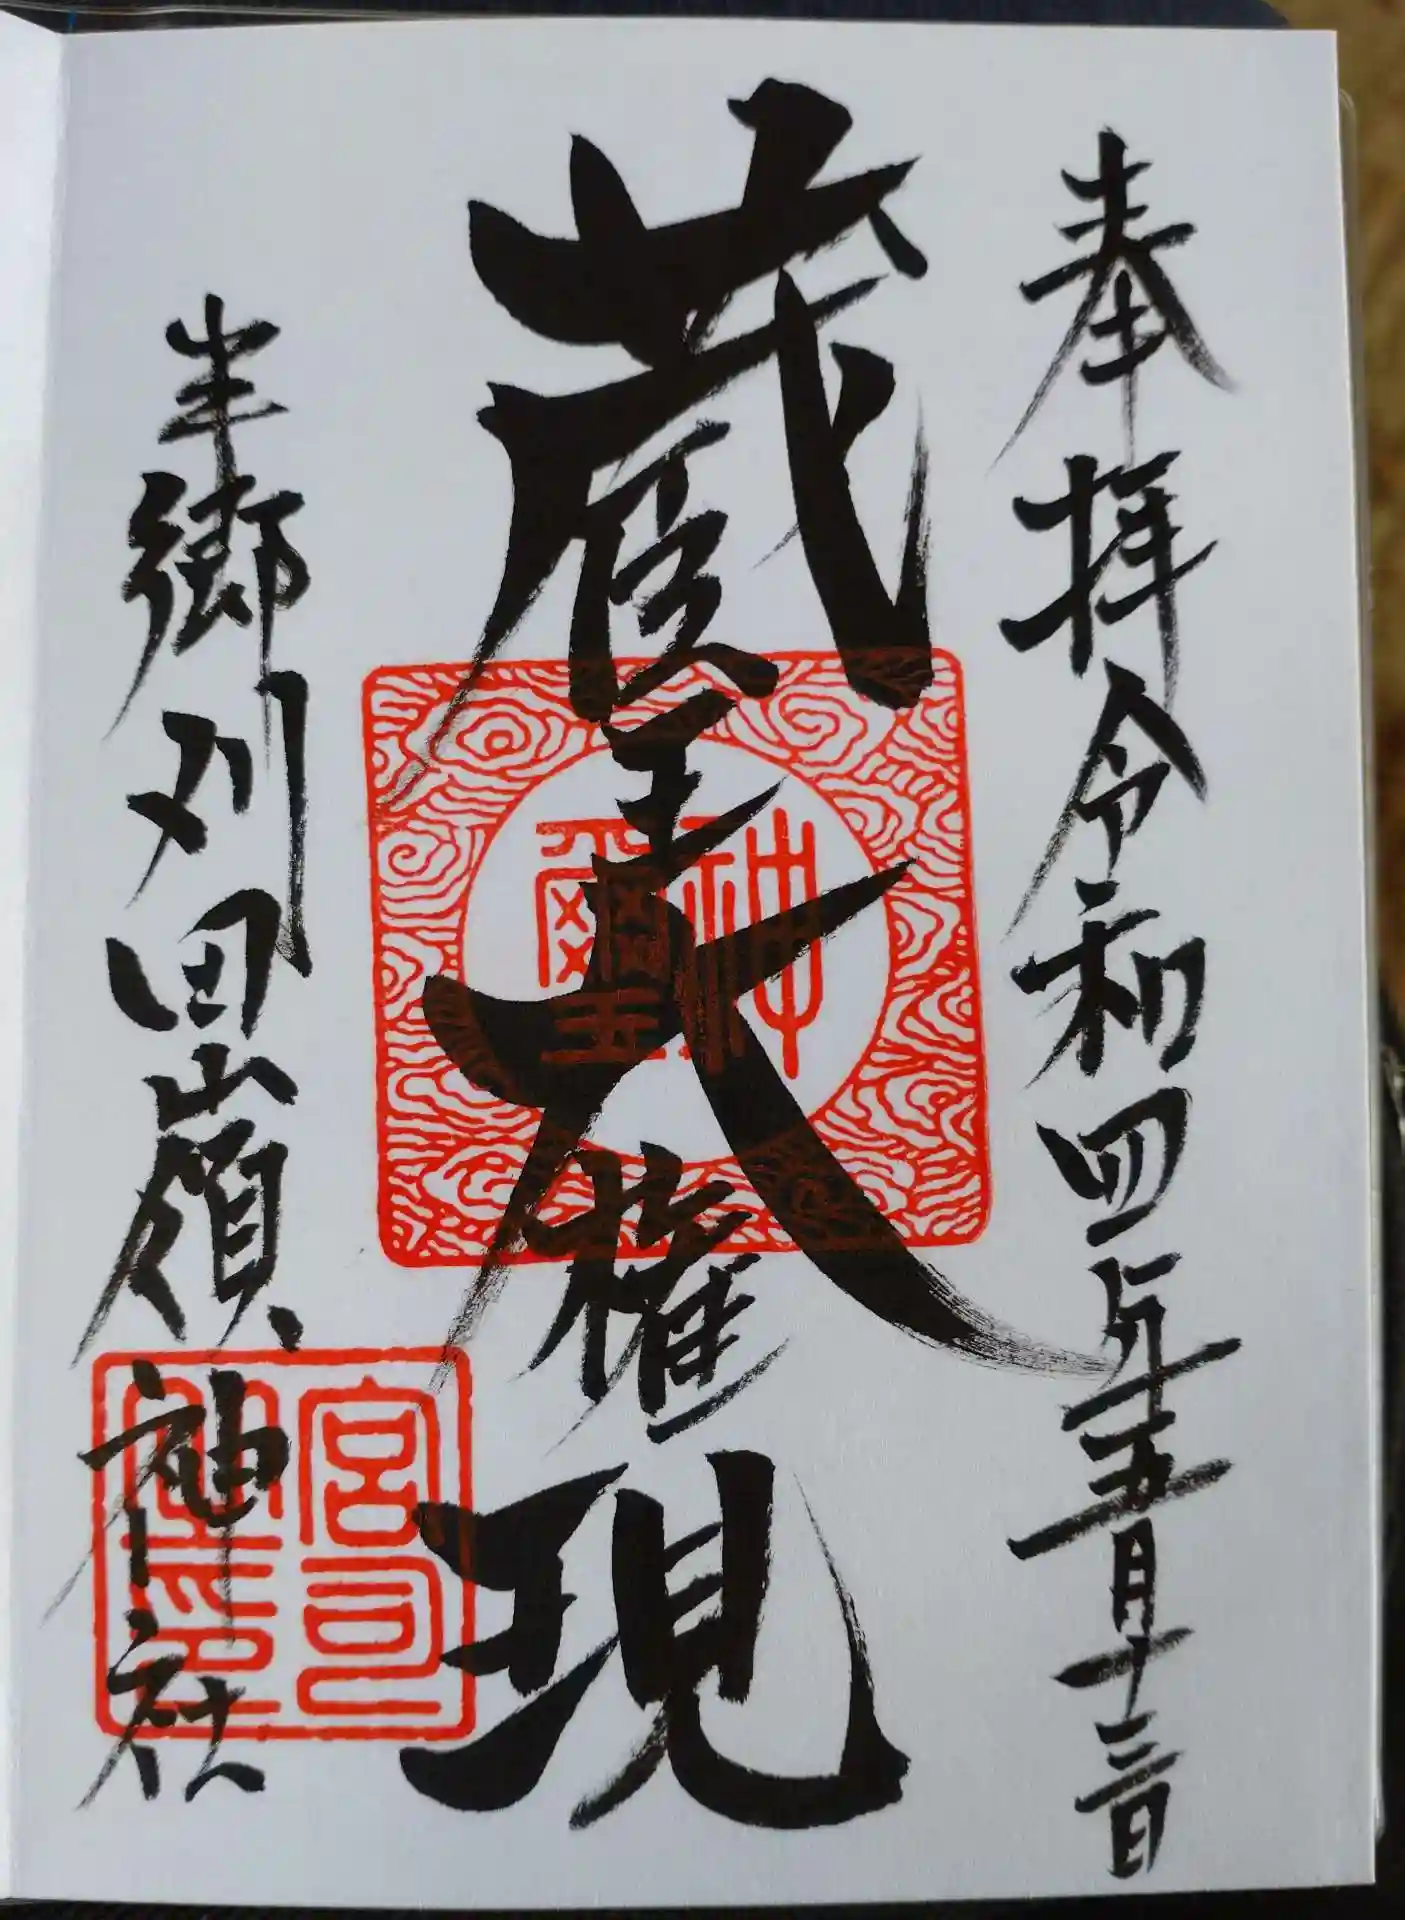 奉拝 令和四年五月十三日
蔵王大権現
神璽
半郷 刈田嶺神社
宮司之印